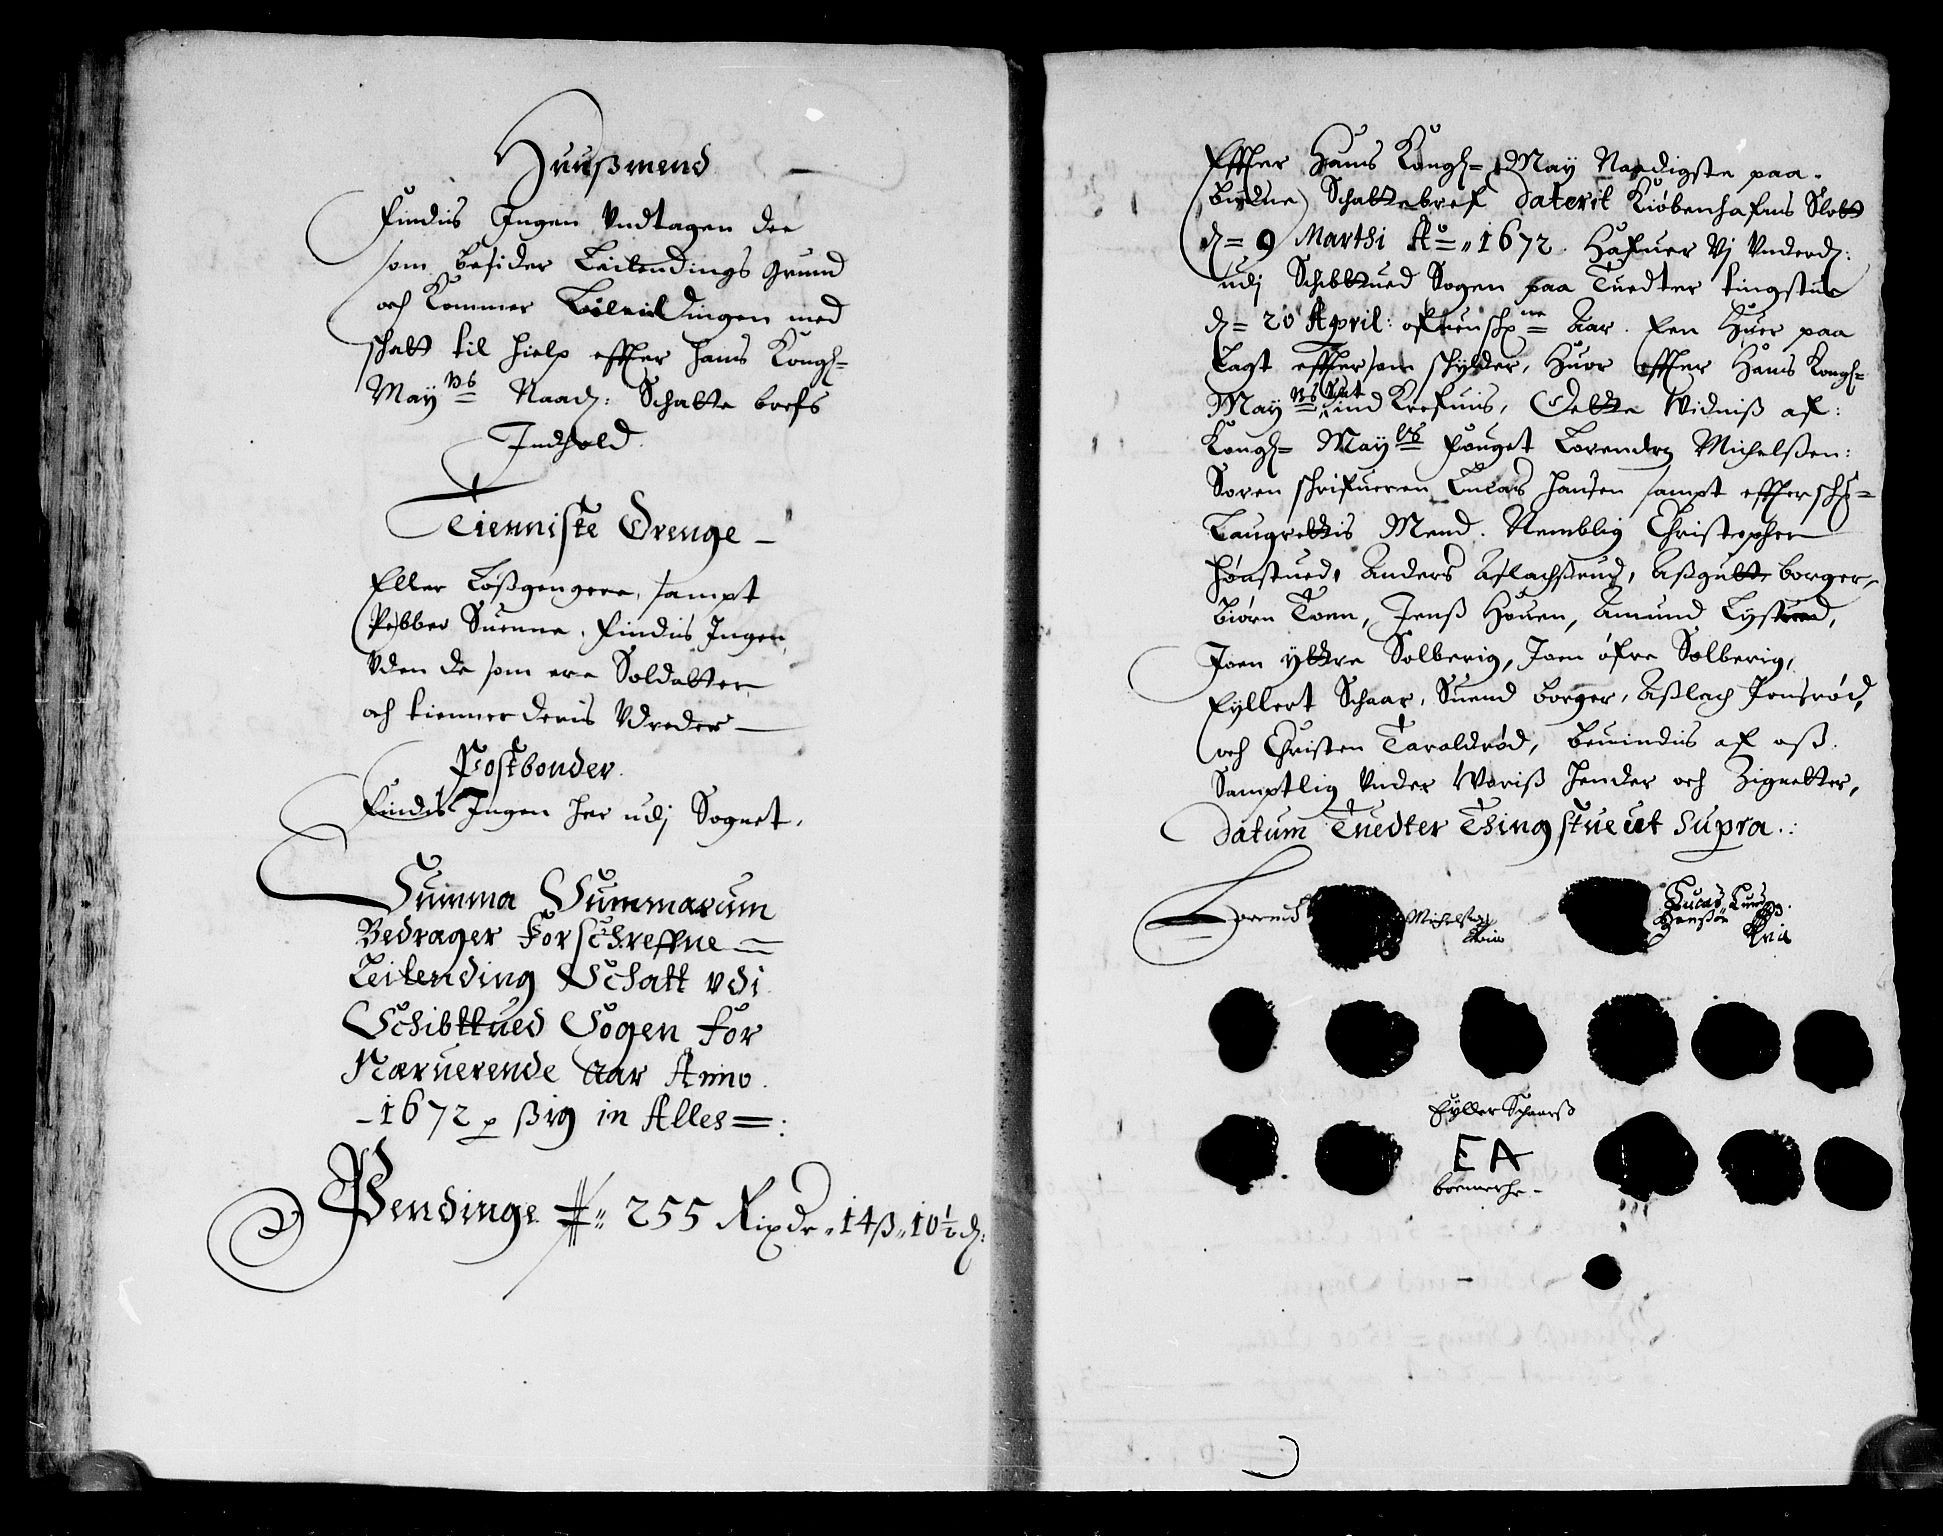 Huußmend
Findiis Ingen Vndtagen dee
som besider Leilendings Grund
och Kommer Leilendingen med
schatt til hielp effter hans Kongl=
May^ts Naad: Schatte brefs
Indhold.
Tienniste Drenge
Eller Lößgengere, sampt
Pebber Suenne, findiis Ingen,
Vden de som ere Soldatter
och tienner deris Vdreder
Postbonder.
findis Ingen her udj Sognet.
Summa Summarum
Bedrager Forschreffne
Leilending Schatt vdi
Schibttued Sogen for
Nærverende Aar Anno
1672 ßig in Alles =:
Pendinge 255 Rixdr 14ß 10½ d:
Effter Hans Kongl= May Naadigste paa
budne Schattebref Daterit Kiøbenhafns Slott
d= 9 Marthi A°= 1672. Hafuer Vj Vnderd:
udj Schibttued Sogen paa Tuedter tingstue
d= 20 April: ofuensch^ne Aar. Een Huer paa
Lagt effterson schylder, Huor effter Hans Kongl=
May^ts find Krefuis, Dette Vidniß af:
Kongl= May^ts fouget Lorendtz Michelßen:
Soren schrifueren Lucas Hansen sampt effterschr=
Laugrettis Mend. Nemblig Christopher
Hoastued, Anders Aslachßrud, Aßgutt borger,
Biørn Toen, Jenß Houen, Amund Lystued,
Joen yttre Solberig, Joen øfre Solberig,
Eyllert Schaar, Suend borger, Aßlach Jonsrød,
och Christen Taraldrød, beuindiis af oß
Samptlig Vnder Woriß Hender och Zignetter,
Datum Tuedter Thingstue ut Supra.:
Lorend Michelßen
Lucas
Hansßøn
Eyller Schaarß
EA
bomerche